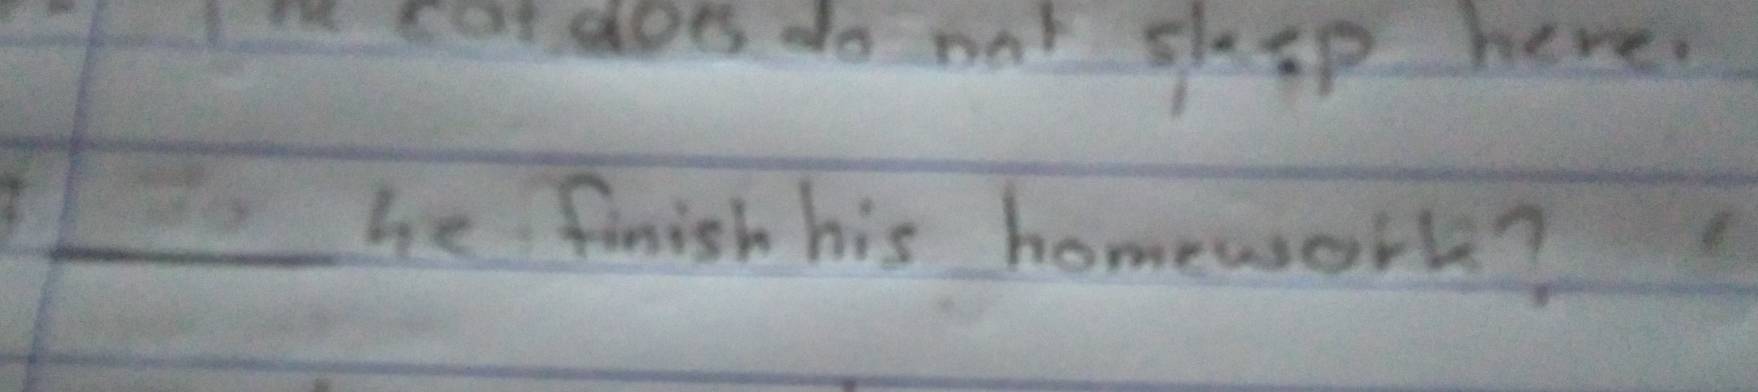 The cat does do not sleep here.
he finish his homework?